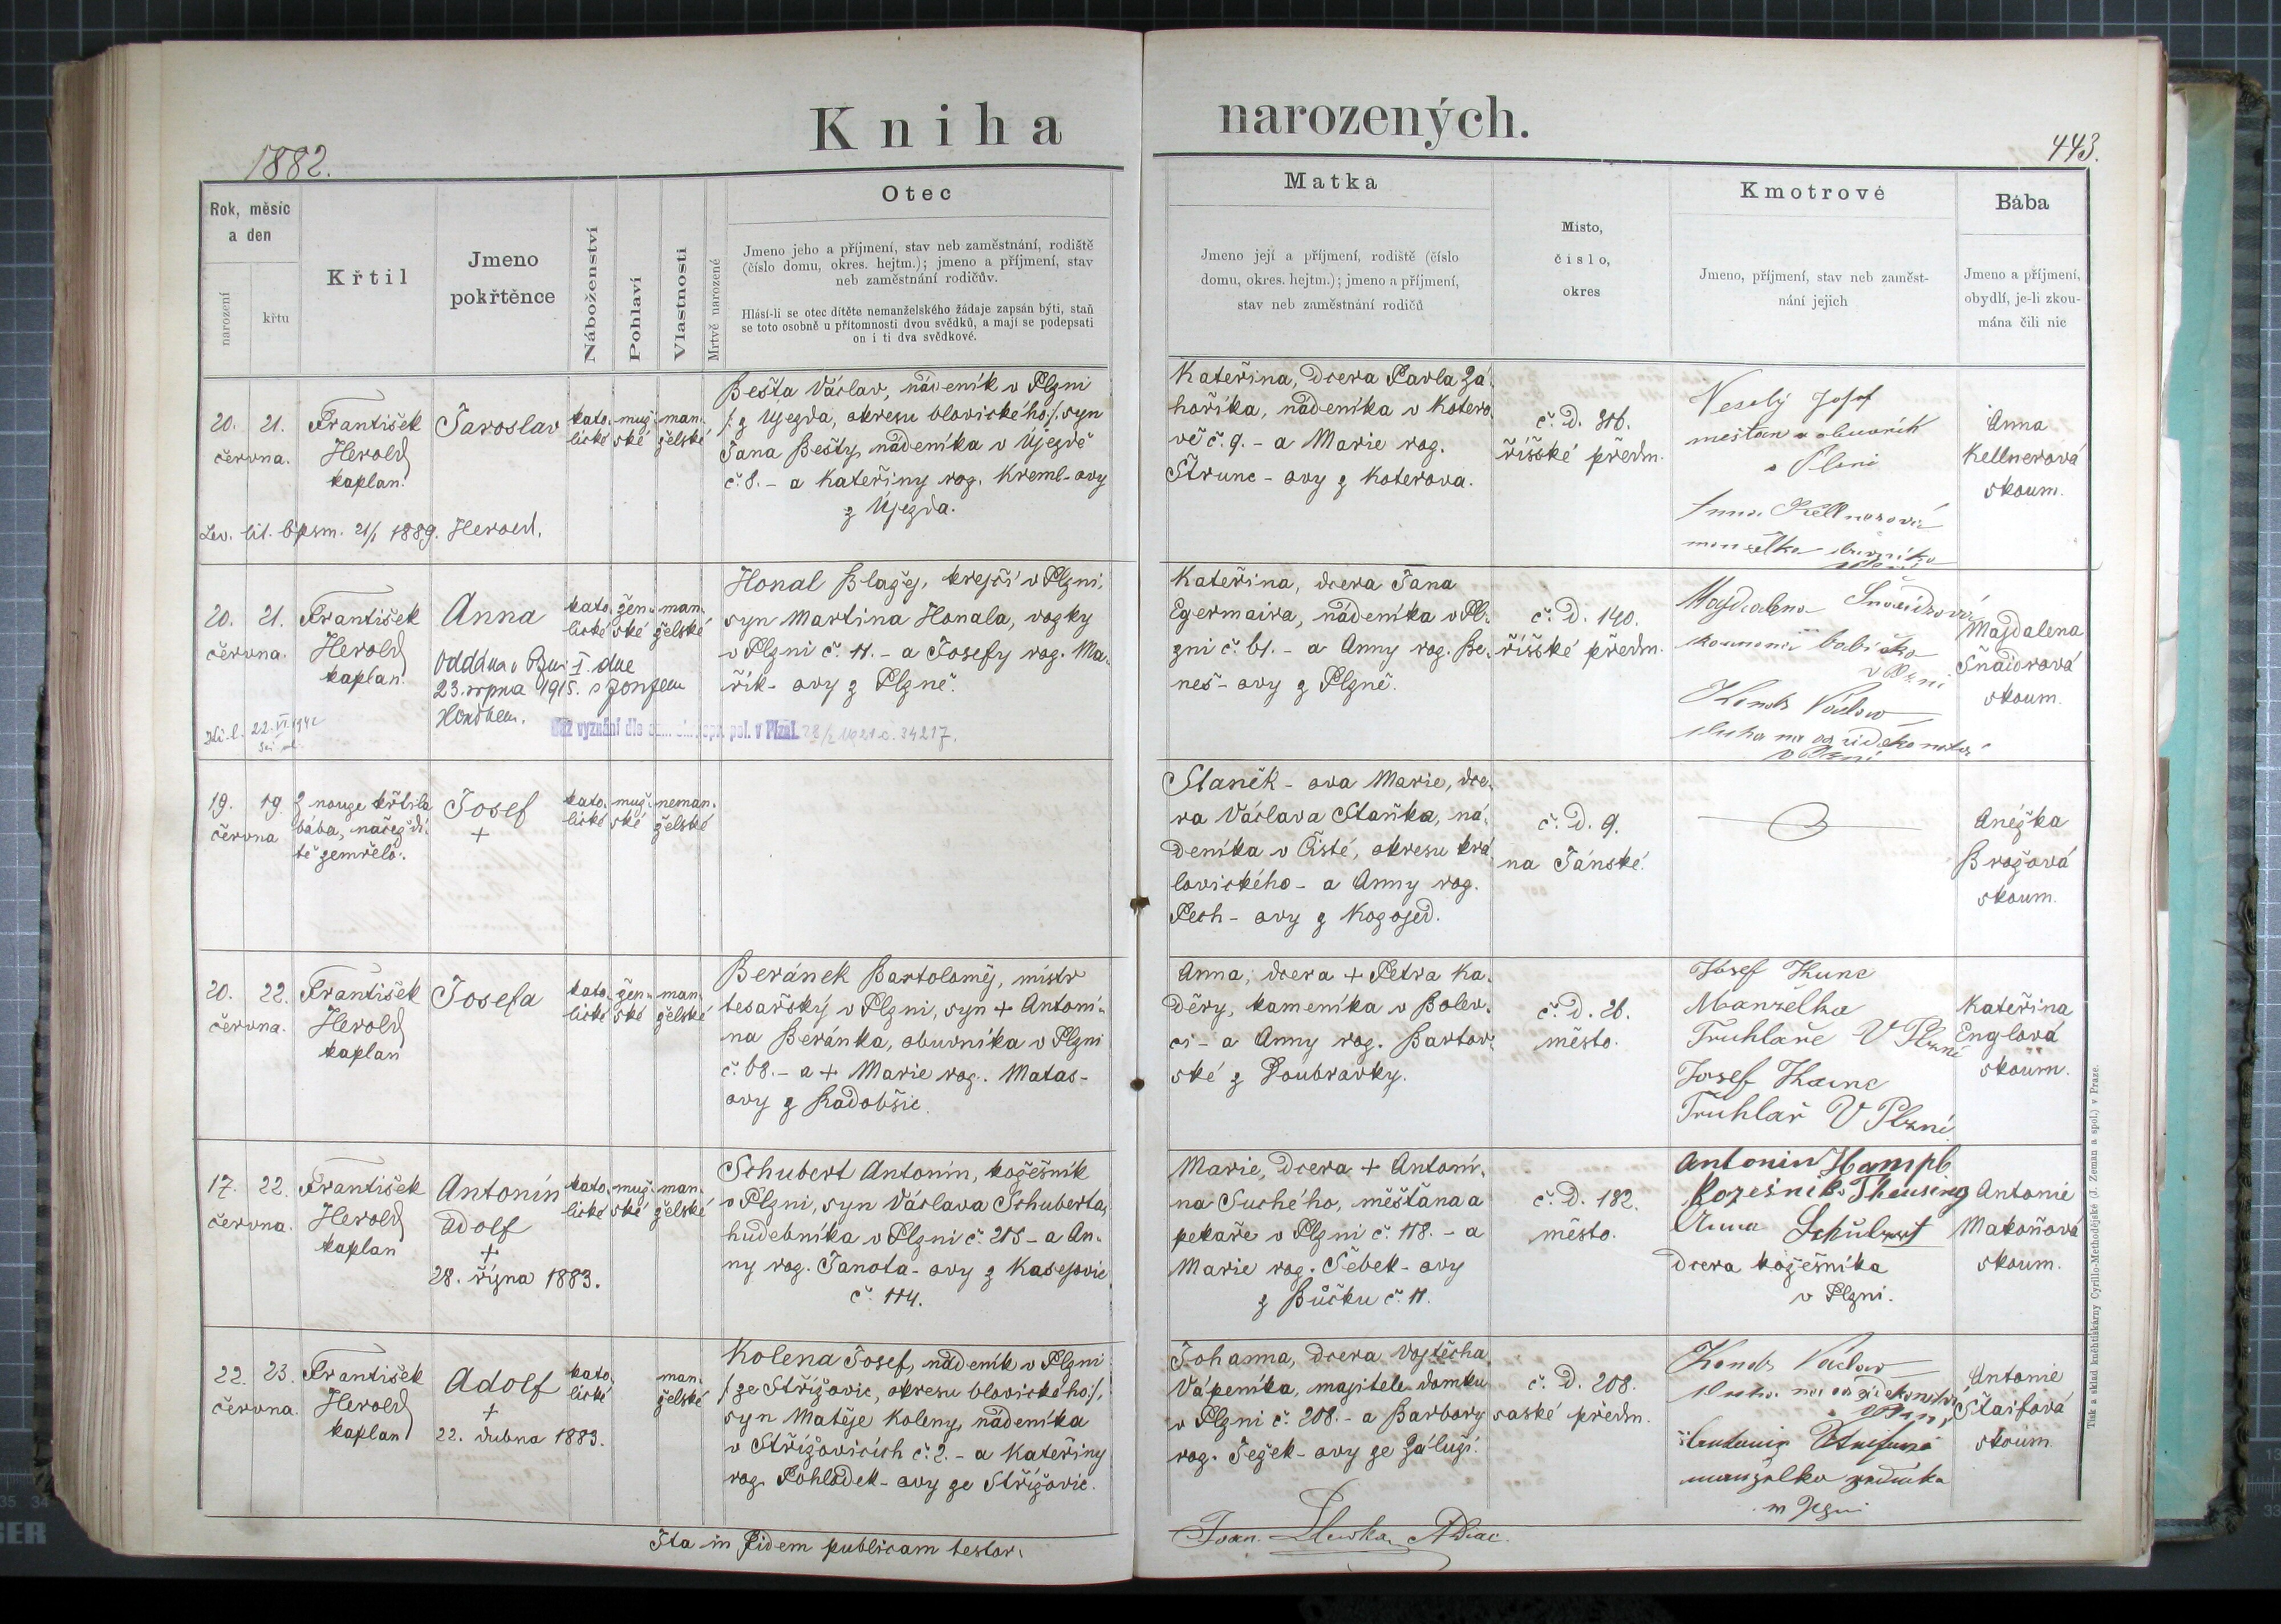 Kniha narozených.
1882.
443.
Rok, měsíc
a den
narození
křtu
Křtil
Jmeno
pokřtěnce
Náboženství
Pohlaví
Vlastnosti
Mrtvě narozené
Otec
Jmeno jeho a příjmení, stav neb zaměstnání, rodiště
(číslo domu, okres. hejtm.); jmeno a příjmení, stav
neb zaměstnání rodičův.
Hlásí-li se otec dítěte nemanželského žádaje zapsán býti, staň
se toto osobně u přítomnosti dvou svědků, a mají se podepsati
on i ti dva svědkové.
Matka
Jmeno její a příjmení, rodiště (číslo
domu, okres. hejtm.); jmeno a příjmení,
stav neb zaměstnání rodičů
Místo,
číslo,
okres
Kmotrové
Jmeno, příjmení, stav neb zaměst-
nání jejich
Bába
Jmeno a příjmení,
obydlí, je-li zkou-
mána čili nic
20. června.
21.
František
Herold
kaplan.
Jaroslav
kato-
lické
muž-
ské
man-
želské
Bešta Václav, nádeník v Plzni
/: z Újezda, okresu blovického :/ syn
Jana Bešty, nádeníka v Újezdě
č. 8. - a Kateřiny roz. Kreml-ovy
z Újezda.
Kateřina, dcera Pavla Zá-
hoříka, nádeníka v Kotero-
vě č. 9. - a Marie roz.
Štrunc - ovy z Koterova.
č. D. 316.
říšské předm.
Veselý Josef
mešťan a obuvník
v Plzni
Anna Kellnerová
manželka obuvníka
Anna
Kellnerová
skoum.
Lev. lit. bpsm. 21/1 1889. Herold.
20. června.
21.
František
Herold
kaplan.
Anna
oddána
23. srpna 1915. s Josefem
kato-
lické
žen-
ské
man-
želské
Honal Blažej, krejčí v Plzni,
syn Martina Honala, vozky
v Plzni č. 11. - a Josefy roz. Ma-
řík - ovy z Plzně.
Bez vyznání dle
pol. v Plzni 28/2 1921 č. 34217.
22. VI. 1942
Kateřina, dcera Jana
Egermaira, nádeníka v Pl-
zni č. 61. - a Anny roz. Be-
neš - ovy z Plzně.
č. D. 140.
říšské předm.
Magdalena Šnaidrová
skoumaná babička
v Plzni
Václav
sluha
v Plzni
Magdalena
Šnaidrová
skoum.
19. června
19.
Z nouze křtila
bába, načež dí-
tě zemřelo.
Josef
+
kato-
lické
muž-
ské
neman-
želské
Staněk - ova Marie, dce-
ra Václava Staňka, ná-
deníka v Čisté, okresu krá-
lovického - a Anny roz.
Pech - ovy z Kozojed.
č. D. 9.
na Jánské.
Anežka
Brožová
skoum.
20. června.
22.
František
Herold
kaplan
Josefa
kato-
lické
žen-
ské
man-
želské
Beránek Bartoloměj, mistr
tesařský v Plzni, syn + Antoní-
na Beránka, obuvníka v Plzni
č. 68. - a + Marie roz. Matas-
ovy z Radobšic.
Anna, dcera + Petra Ka-
děry, kameníka v Bolev-
ci - a Anny roz. Bartov-
ské z Doubravky.
č. D. 26.
město.
Josef Kunc
Manželka
Truhlaře V Plzni
Josef Kunc
Truhlař V Plzni
Kateřina
Englová
skoum.
17. června.
22.
František
Herold
kaplan
Antonín
Adolf
+
28. října 1883.
kato-
lické
muž-
ské
man-
želské
Schubert Antonín, kožešník
v Plzni, syn Václava Schuberta,
hudebníka v Plzni č. 215 - a An-
ny roz. Janota - ovy z Kasejovic
č. 114.
Marie, dcera + Antoní-
na Suchého, měšťana a
pekaře v Plzni č. 118. - a
Marie roz. Šebek - ovy
z Bůčku č. 11.
č. D. 182.
město.
Antonin Hampl
Kozešnik v Theusing
Anna Schubert
dcera kožešníka
v Plzni.
Antonie
Makoňová
skoum.
22. června.
23.
František
Herold
kaplan
Adolf
+
22. dubna 1883.
kato-
lické
man-
želské
Kolena Josef, nádeník v Plzni
/: ze Střížovic, okresu blovického :/,
syn Matěje Koleny, nádeníka
v Střížovicích č. 2. - a Kateřiny
roz. Pohlodek - ovy ze Střížovic.
Johanna, dcera Vojtěcha
Vápeníka, majitele domku
v Plzni č. 208. - a Barbory
roz. Ježek - ovy ze Záluží.
č. D. 208.
saské předm.
Václav
sluha
manželka
Antonie
Štaifová
skoum.
Ita in fidem publicam testor.
Tisk a sklad knihtiskárny Cyrillo-Methodějské (J. Zeman a spol.) v Praze.